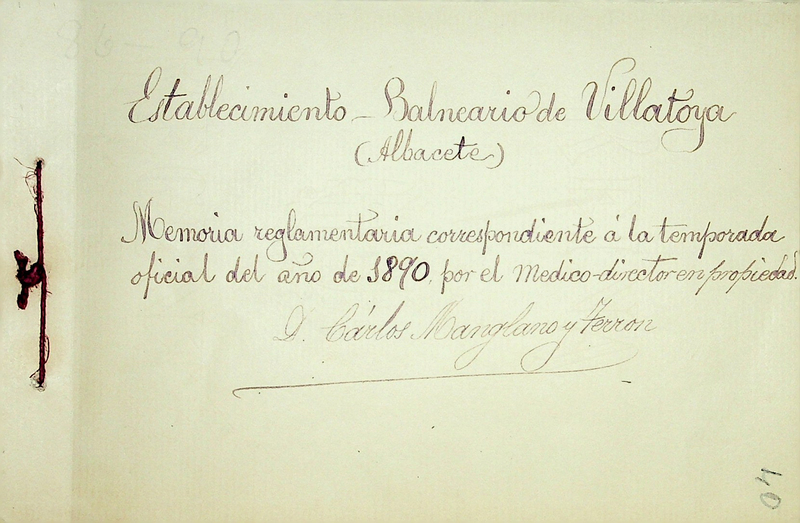 86-90
Establecimiento - Balneario de Villatoya
(Albacete)
Memoria reglamentaria correspondiente á la temporada
oficial del año de 1890, por el Medico-director en propiedad.
D. Cárlos Manglano y Ferron
40